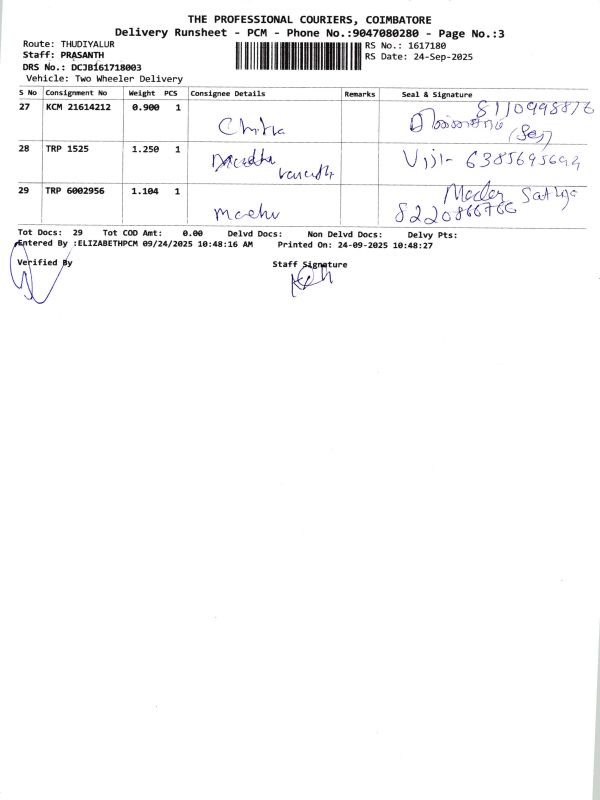 THE PROFESSIONAL COURIERS, COIMBATORE
Delivery Runsheet - PCM - Phone No.:9047080280 - Page No.:3
Route: THUDIYALUR
Staff: PRASANTH
DRS No.: DCJBI61718003
Vehicle: Two Wheeler Delivery
RS No.: 1617180
RS Date: 24-Sep-2025
S No Consignment No Weight PCS Consignee Details Remarks Seal & Signature
27 KCM 21614212 0.900 1 Chitra 8110998876
28 TRP 1525 1.250 1 Viji- 6385695694
29 TRP 6002956 1.104 1 Madhu Sathya
8220866766
Tot Docs: 29 Tot COD Amt: 0.00 Delvd Docs: Non Delvd Docs: Delvy Pts:
Entered By :ELIZABETHPCM 09/24/2025 10:48:16 AM Printed On: 24-09-2025 10:48:27
Verified By Staff Signature